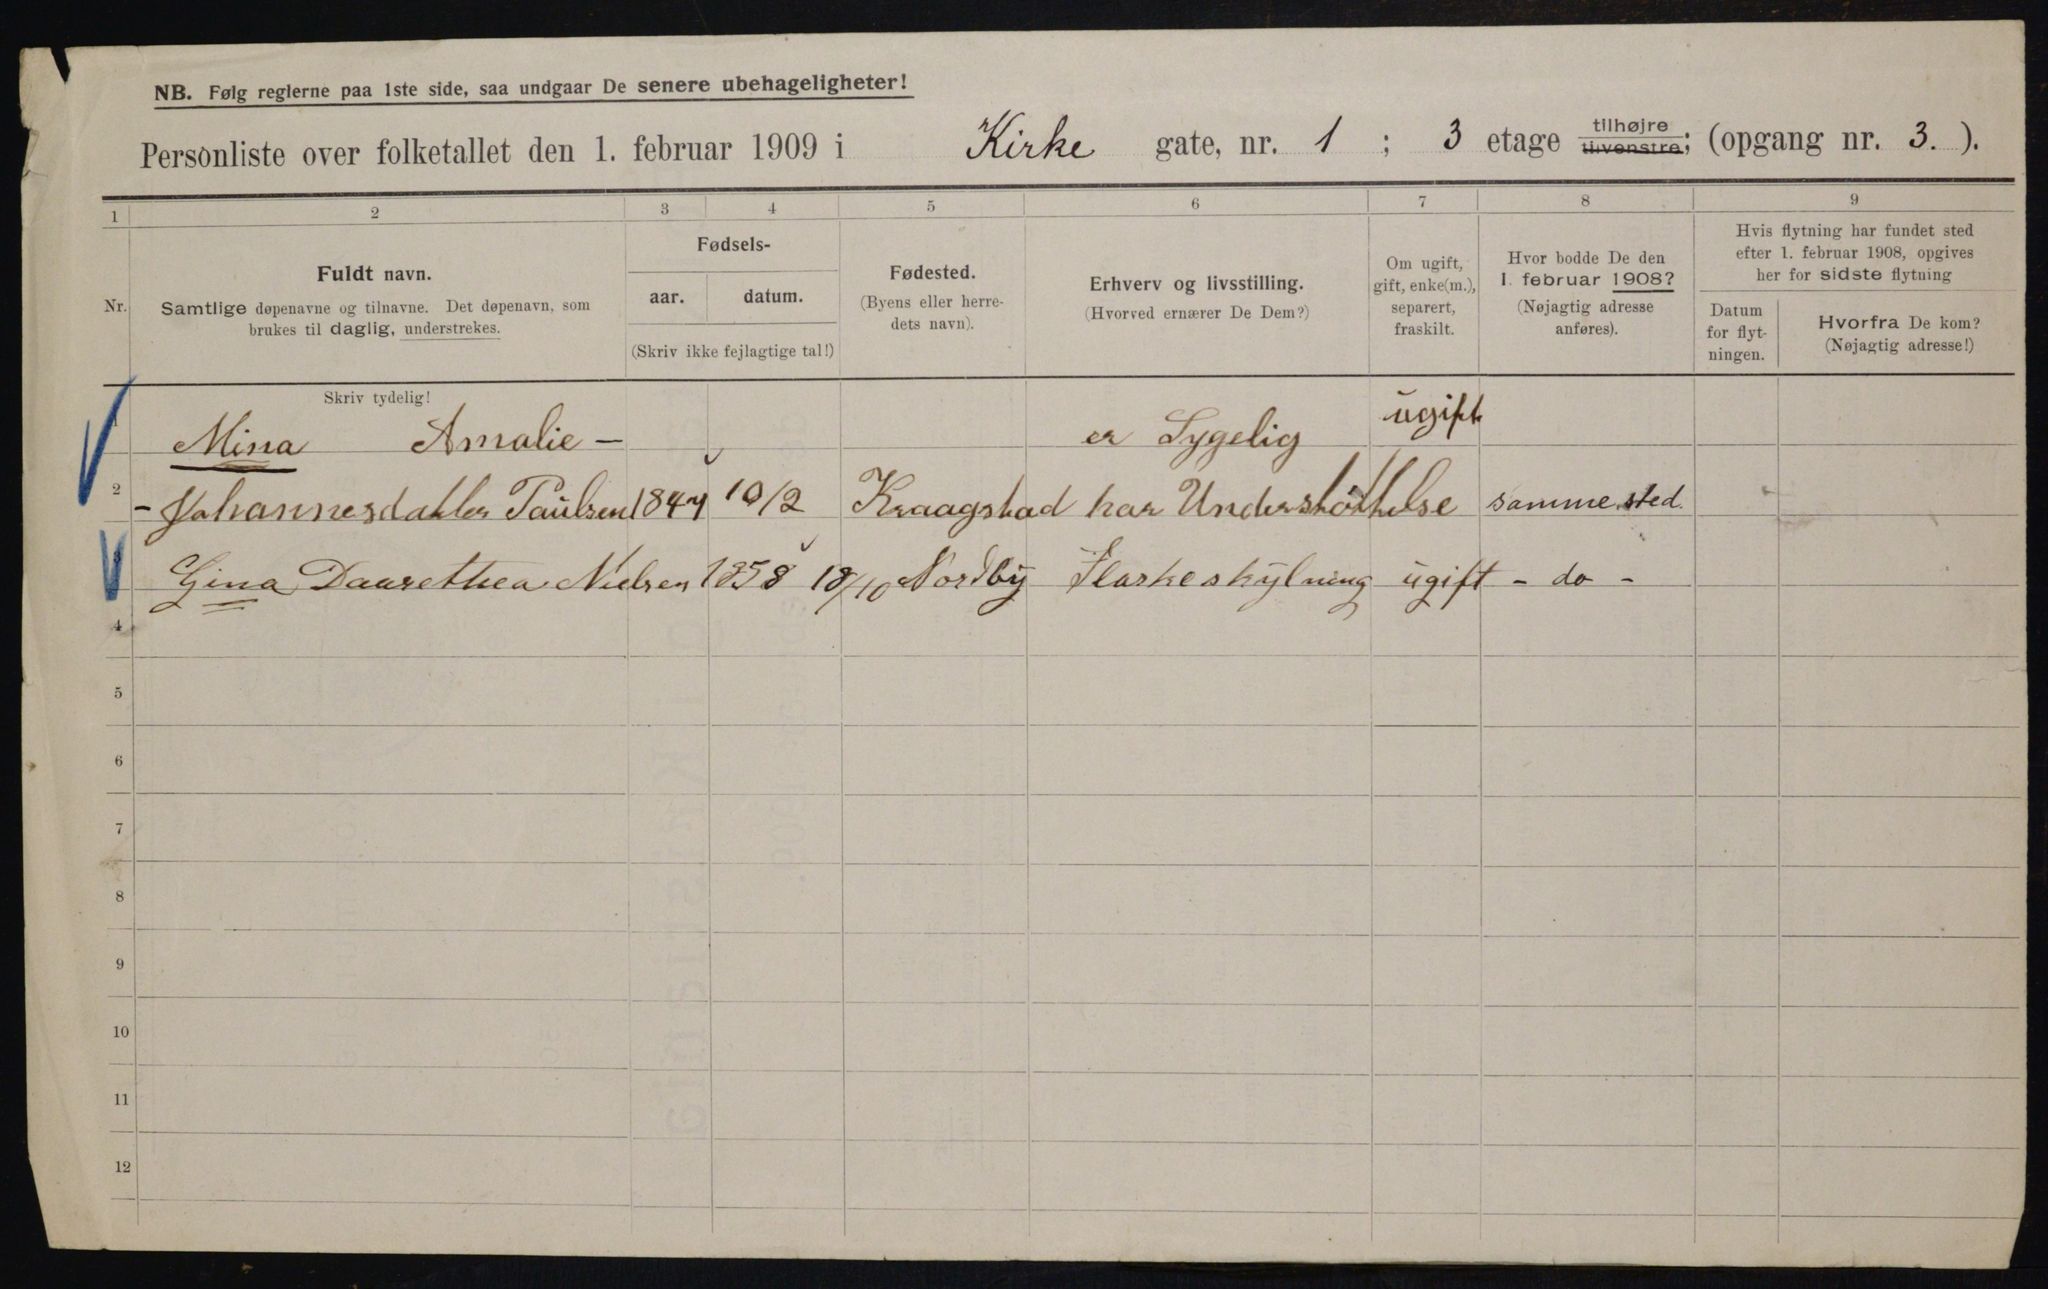 NB. Følg reglerne paa 1ste side, saa undgaar De senere ubehageligheter!
Personliste over folketallet den 1. februar 1909 i Kirke gate, nr. 1 ; 3 etage tilhøjre tilvenstre; (opgang nr. 3. ).
1 2 3 4 5 6 7 8 9
Nr.
Fuldt navn.
Samtlige døpenavne og tilnavne. Det døpenavn, som
brukes til daglig, understrekes.
Fødsels-
aar. datum.
(Skriv ikke fejlagtige tal!)
Fødested.
(Byens eller herre-
dets navn).
Erhverv og livsstilling.
(Hvorved ernærer De Dem?)
Om ugift,
gift, enke(m.),
separert,
fraskilt.
Hvor bodde De den
1. februar 1908?
(Nøjagtig adresse
anføres).
Hvis flytning har fundet sted
efter 1. februar 1908, opgives
her for sidste flytning
Datum
for flyt-
ningen.
Hvorfra De kom?
(Nøjagtig adresse!)
Skriv tydelig!
Mina Amalie - er Sygelig ugift
2 - Johannesdatter Paulsen 1847 10/2 Kraagstad har Understøttelse samme sted.
3 Gina Daarethea Nielsen 1858 18/10 Nordby Flaskeskylning ugift - do -
4
5
6
7
8
9
10
11
12